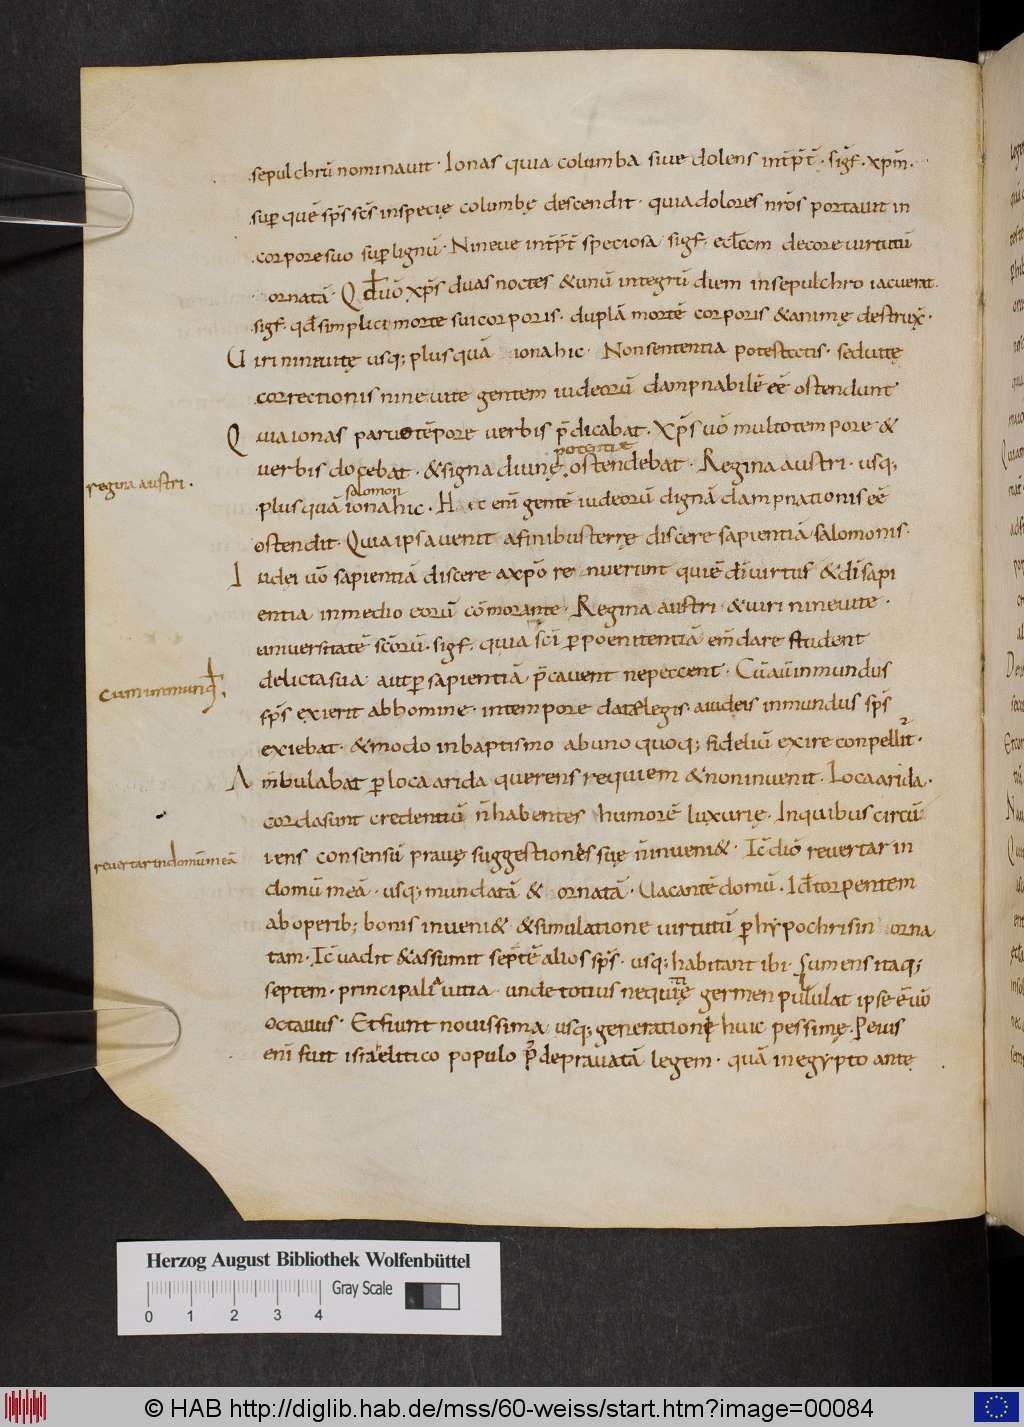 sepulchrū nominauit · Ionas quia columba siue dolens int̄p̄t̄ · sig̅f · xp̄m̄ ·
sup quē sp̄s sc̄s in specię columbę descendit · quia dolores nr̄os portauit in
corpore suo sup lignū · Nineue int̄p̄t̄ speciosa sigf · eccl̄am decore uirtutū
ornatā · Qd̄ uō xp̄s duas noctes & unū integrū diem in sepulchro iacuerat ·
sigf · qd̄ simplici morte sui corporis · duplā mortē corporis & animę destrux̄ ·
Uiri nineuitę usq; plus quā iona hic · Non sententia potestatis · sed uitę
correctionis nineuite gentem iudeorū dampnabilē eē ostendunt
Quia ionas paruo tēpore uerbis p̄dicabat · Xp̄s uō multo tempore &
potentię
uerbis docebat · & signa diuinę ostendebat · Regina austri · usq;
regina austri ·
salomon
plus quā iona hic · Hæc eni̅ gentē iudeorū dignā dampnationis eē
ostendit · Quia ipsa uenit a finibus terrę discere sapientiā salomonis ·
Iudei uō sapientiā discere a xp̄o renuerunt qui ē dī uirtus & dī sapi
entia in medio eorū cōmorante · Regina austri · & uiri nineuite ·
uniuersitatē sc̄orū · sigf · quia sc̄i p poenitentiā em̄dare student
delicta sua · aut p sapientiā p̄cauent ne peccent · Cū aū inmundus
cum inmund
sp̄s exierit ab homine · in tempore datæ legis · a iudeis inmundus sp̄s
exiebat · & modo in baptismo ab uno quoq; fidelium exire conpellit̄ ·
Ambulabat p loca arida querens requiem & non inuenit · Loca arida ·
corda sunt credentiū n̄ habentes humorē luxurię · In quibus circū
iens consensū prauę suggestiones suę n̄ inueni& · Tc̄ dic̄ reuertar in
reuertar in domū meā
domū meā · usq; mundatā & ornatā · Uacantē domū · Id ē torpentem
ab operib; bonis inueni& & simulatione uirtutū p hypochrisin orna
tam · Tc̄ uadit & assumit septē alios sp̄s · usq; habitant ibi · Sumens itaq;
septem · principalia uitia · unde totius nequitię germen pullulat ipse ē uō
octauus · Et fiunt nouissima usq; generationi huic pessimę · Peius
eni̅ fuit israelitico populo p̄ deprauatā legem · quā in egypto ante
Herzog August Bibliothek Wolfenbüttel
Gray Scale
0 1 2 3 4
© HAB http://diglib.hab.de/mss/60-weiss/start.htm?image=00084